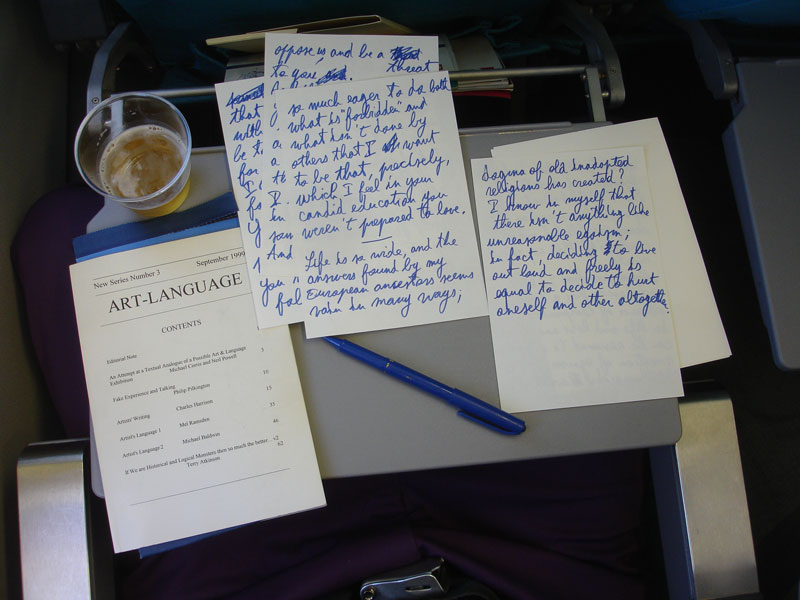 oppose us and be a
to you, threat
that
with
be t
for
I
fo
y
you
fal
so much eager to do both
what is "forbidden" and
what isn't done by
others that I want
to be that, precisely,
which I feel in your
candid education you
weren't prepared to love.
And
Life is so wide, and the
answers found by my
European ancestors seems
vain in many ways;
dogma of old inadapted
religions has created?
I know in myself that
there isn't anything like
unreasonable egoism;
in fact, deciding to live
out loud and freely is
equal to decide to hurt
oneself and other altogether.
New Series Number 3 September 1999
ART-LANGUAGE
CONTENTS
Editorial Note
An Attempt at a Textual Analogue of a Possible Art & Language 3
Exhibition Michael Corris and Neil Powell
Fake Experience and Talking 10
Philip Pilkington 15
Artists' Writing
Charles Harrison 35
Artist's Language 1
Mel Ramsden 46
Artist's Language 2
Michael Baldwin
If We are Historical and Logical Monsters then so much the better
Terry Atkinson 62